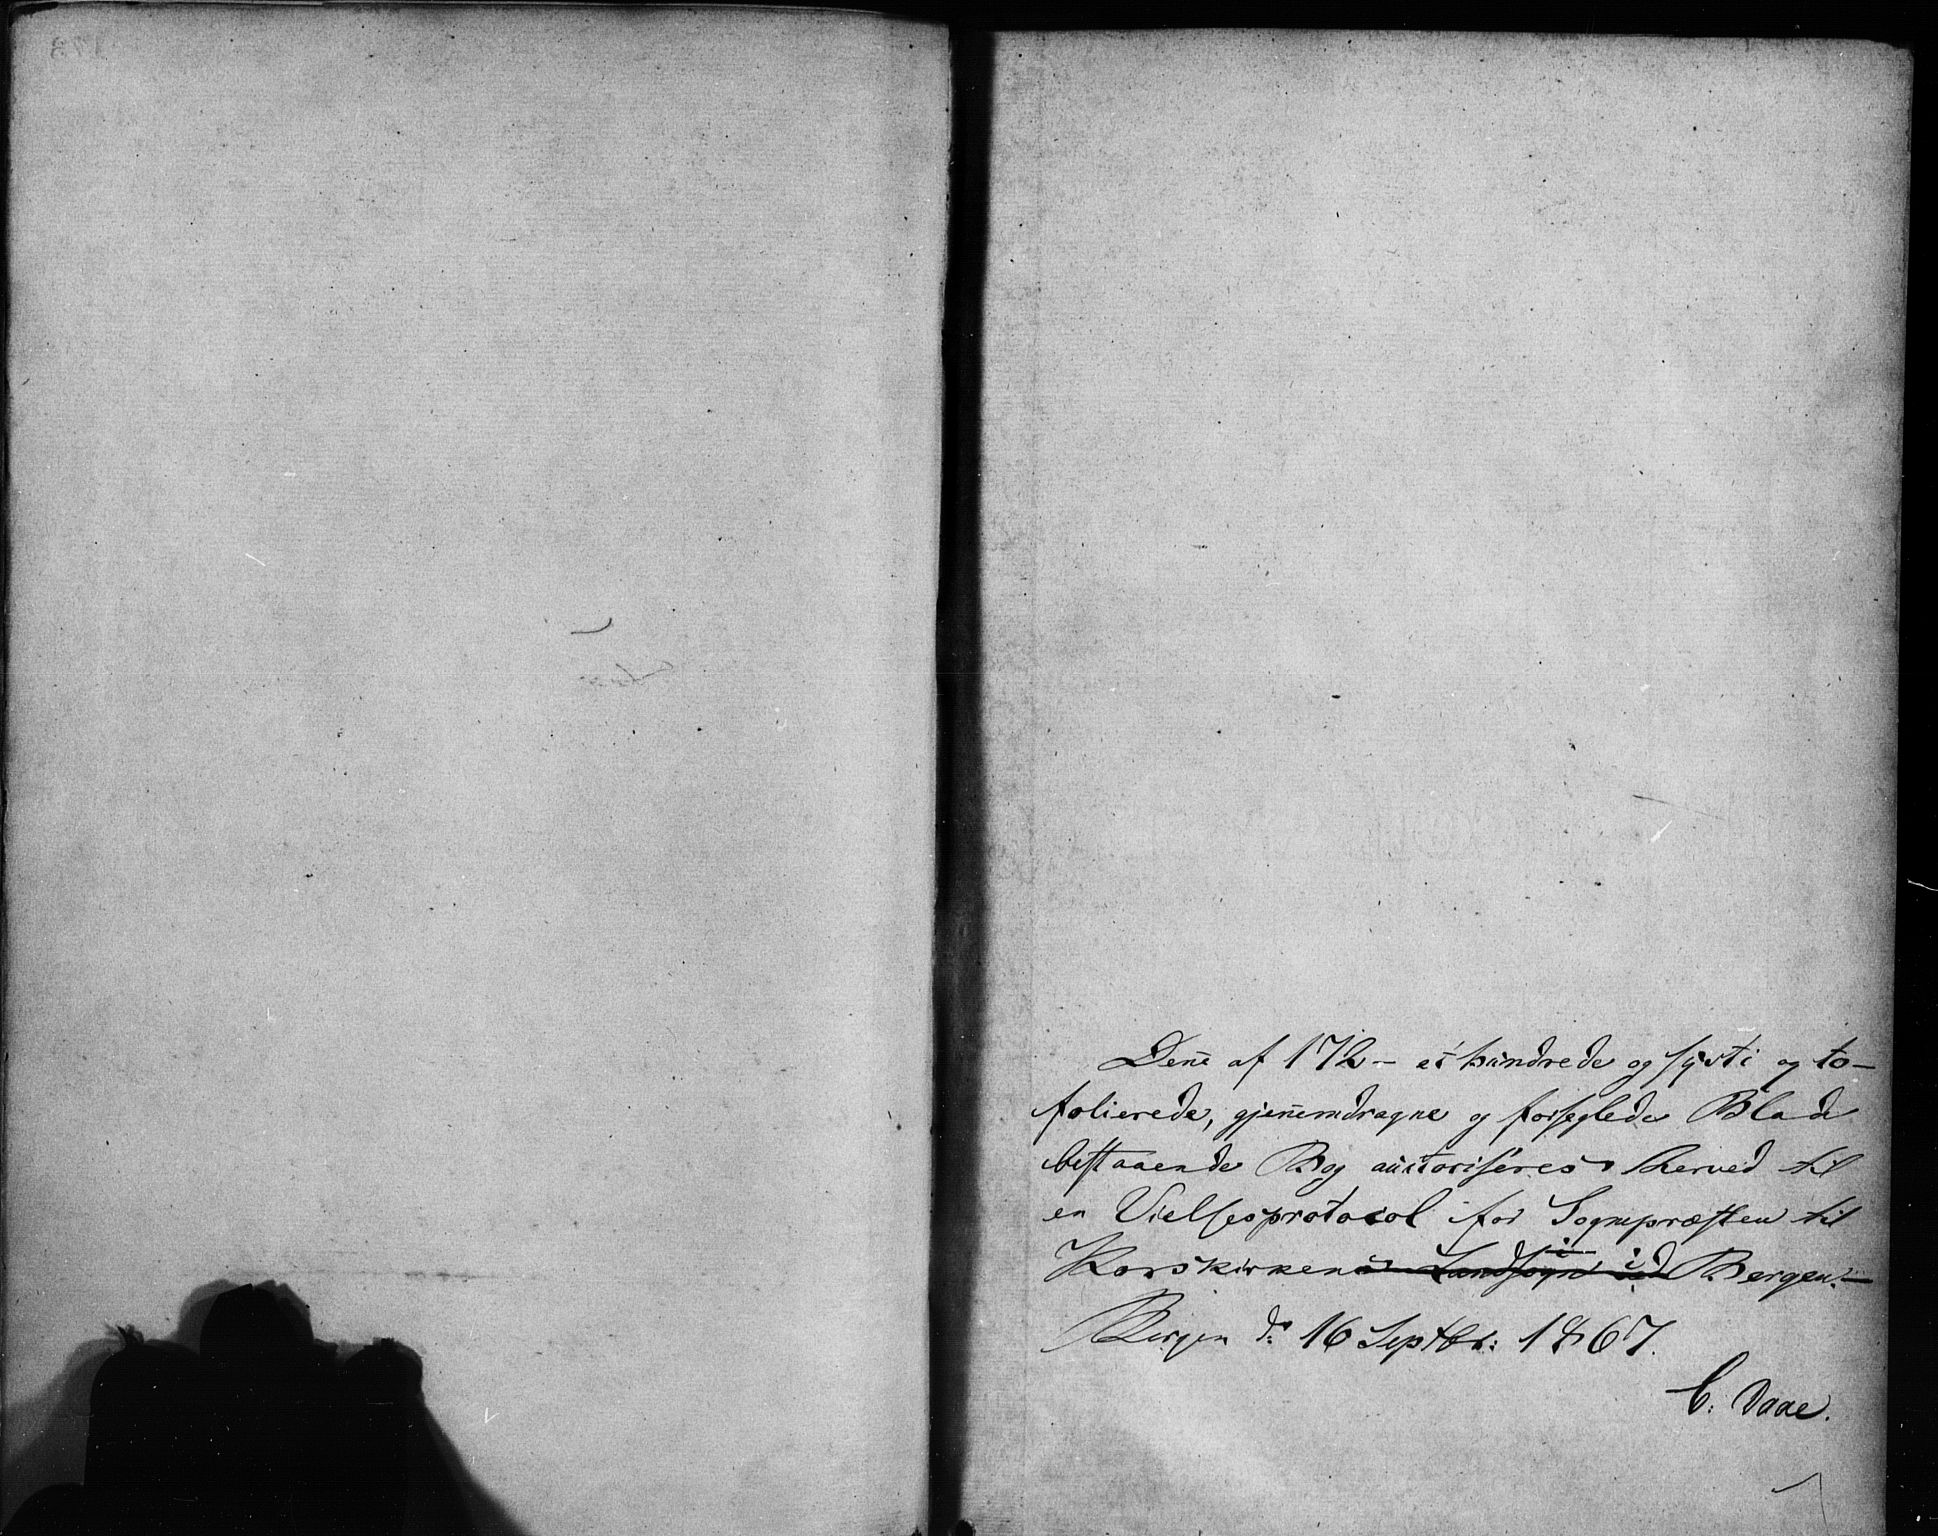 Deñe af 172 - et hundrede og sytti og to -
folierede, gjeñemdragne og forseglede Blade
bestaaende Bog autoriseres herved til
en Vielsesprotocol for Sognepræsten til
Korskirken i Landsogn ved i Bergen. -
Bergen d: 16 Septbr: 1867.
C. Daae.